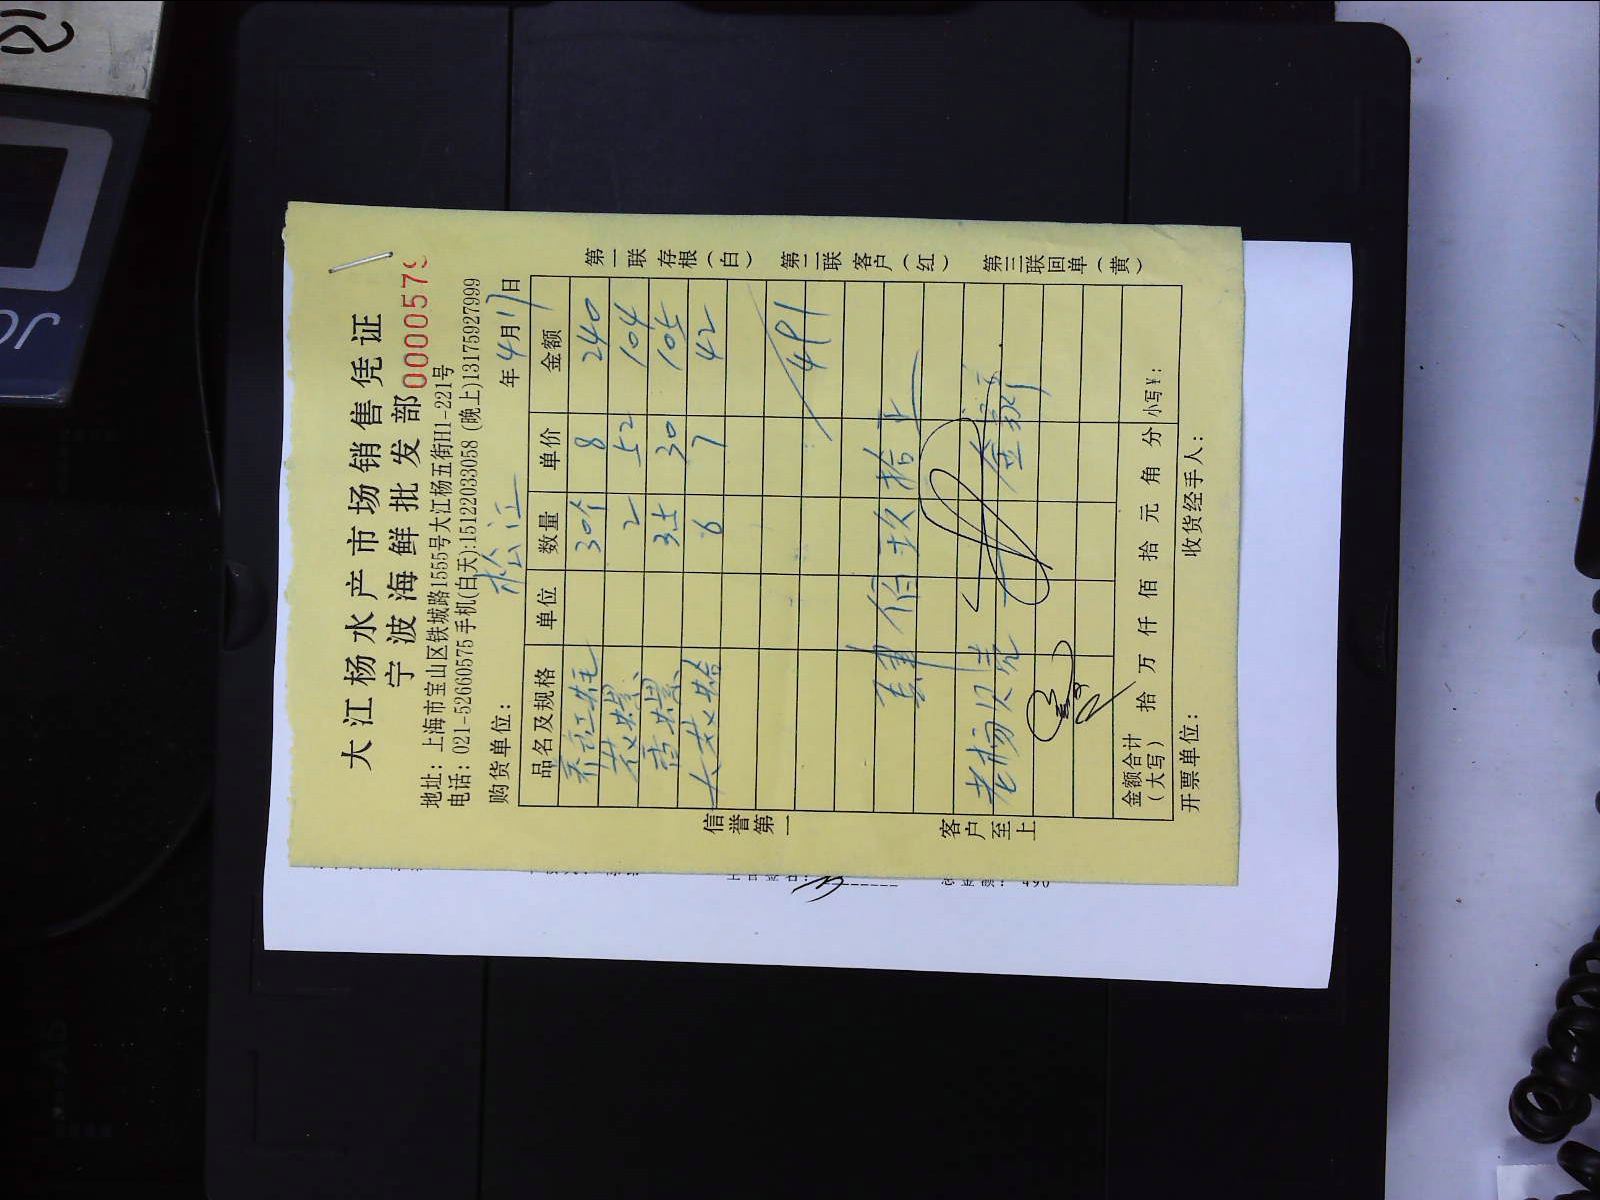 大江杨水产市场销售凭证
宁波海鲜批发部 0000579
地址：上海市宝山区铁城路1555号大江杨五街H1-221号
电话：021-52660575 手机(白天):15122033058 (晚上)13175927999
购货单位： 松江 年 4月 17日
品名及规格 单位 数量 单价 金额
30个 8 240
花螺 2 52 104
香螺 3.5 30 105
大花蛤 6 7 42
491
肆佰玖拾
老杨贝壳
金额合计（大写） 拾 万 仟 佰 拾 元 角 分 小写¥：
开票单位： 收货经手人：
信誉第一 客户至上
第一联存根（白） 第二联客户（红） 第三联回单（黄）
总金额： 490
JO